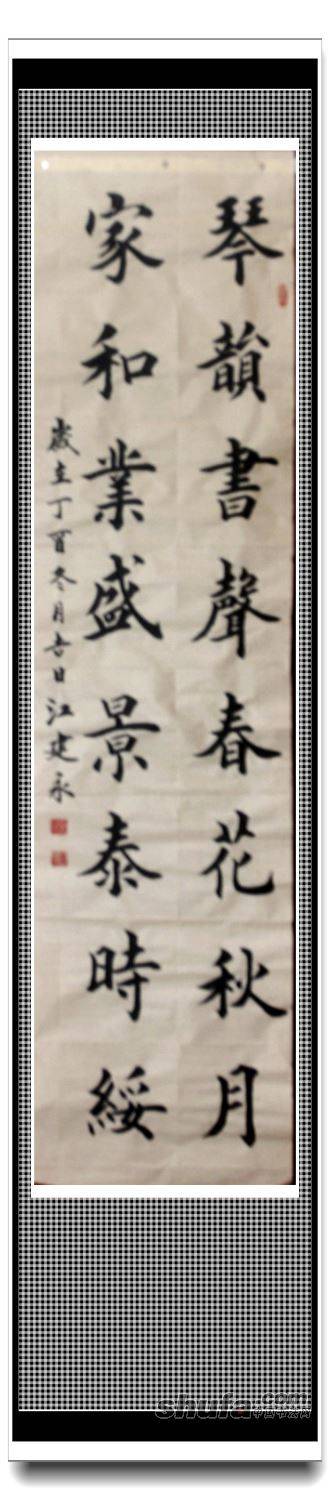 琴韻書聲春花秋月
家和業盛景泰時綏
歲在丁酉冬月吉日江建永
shufa.com
中国书法网